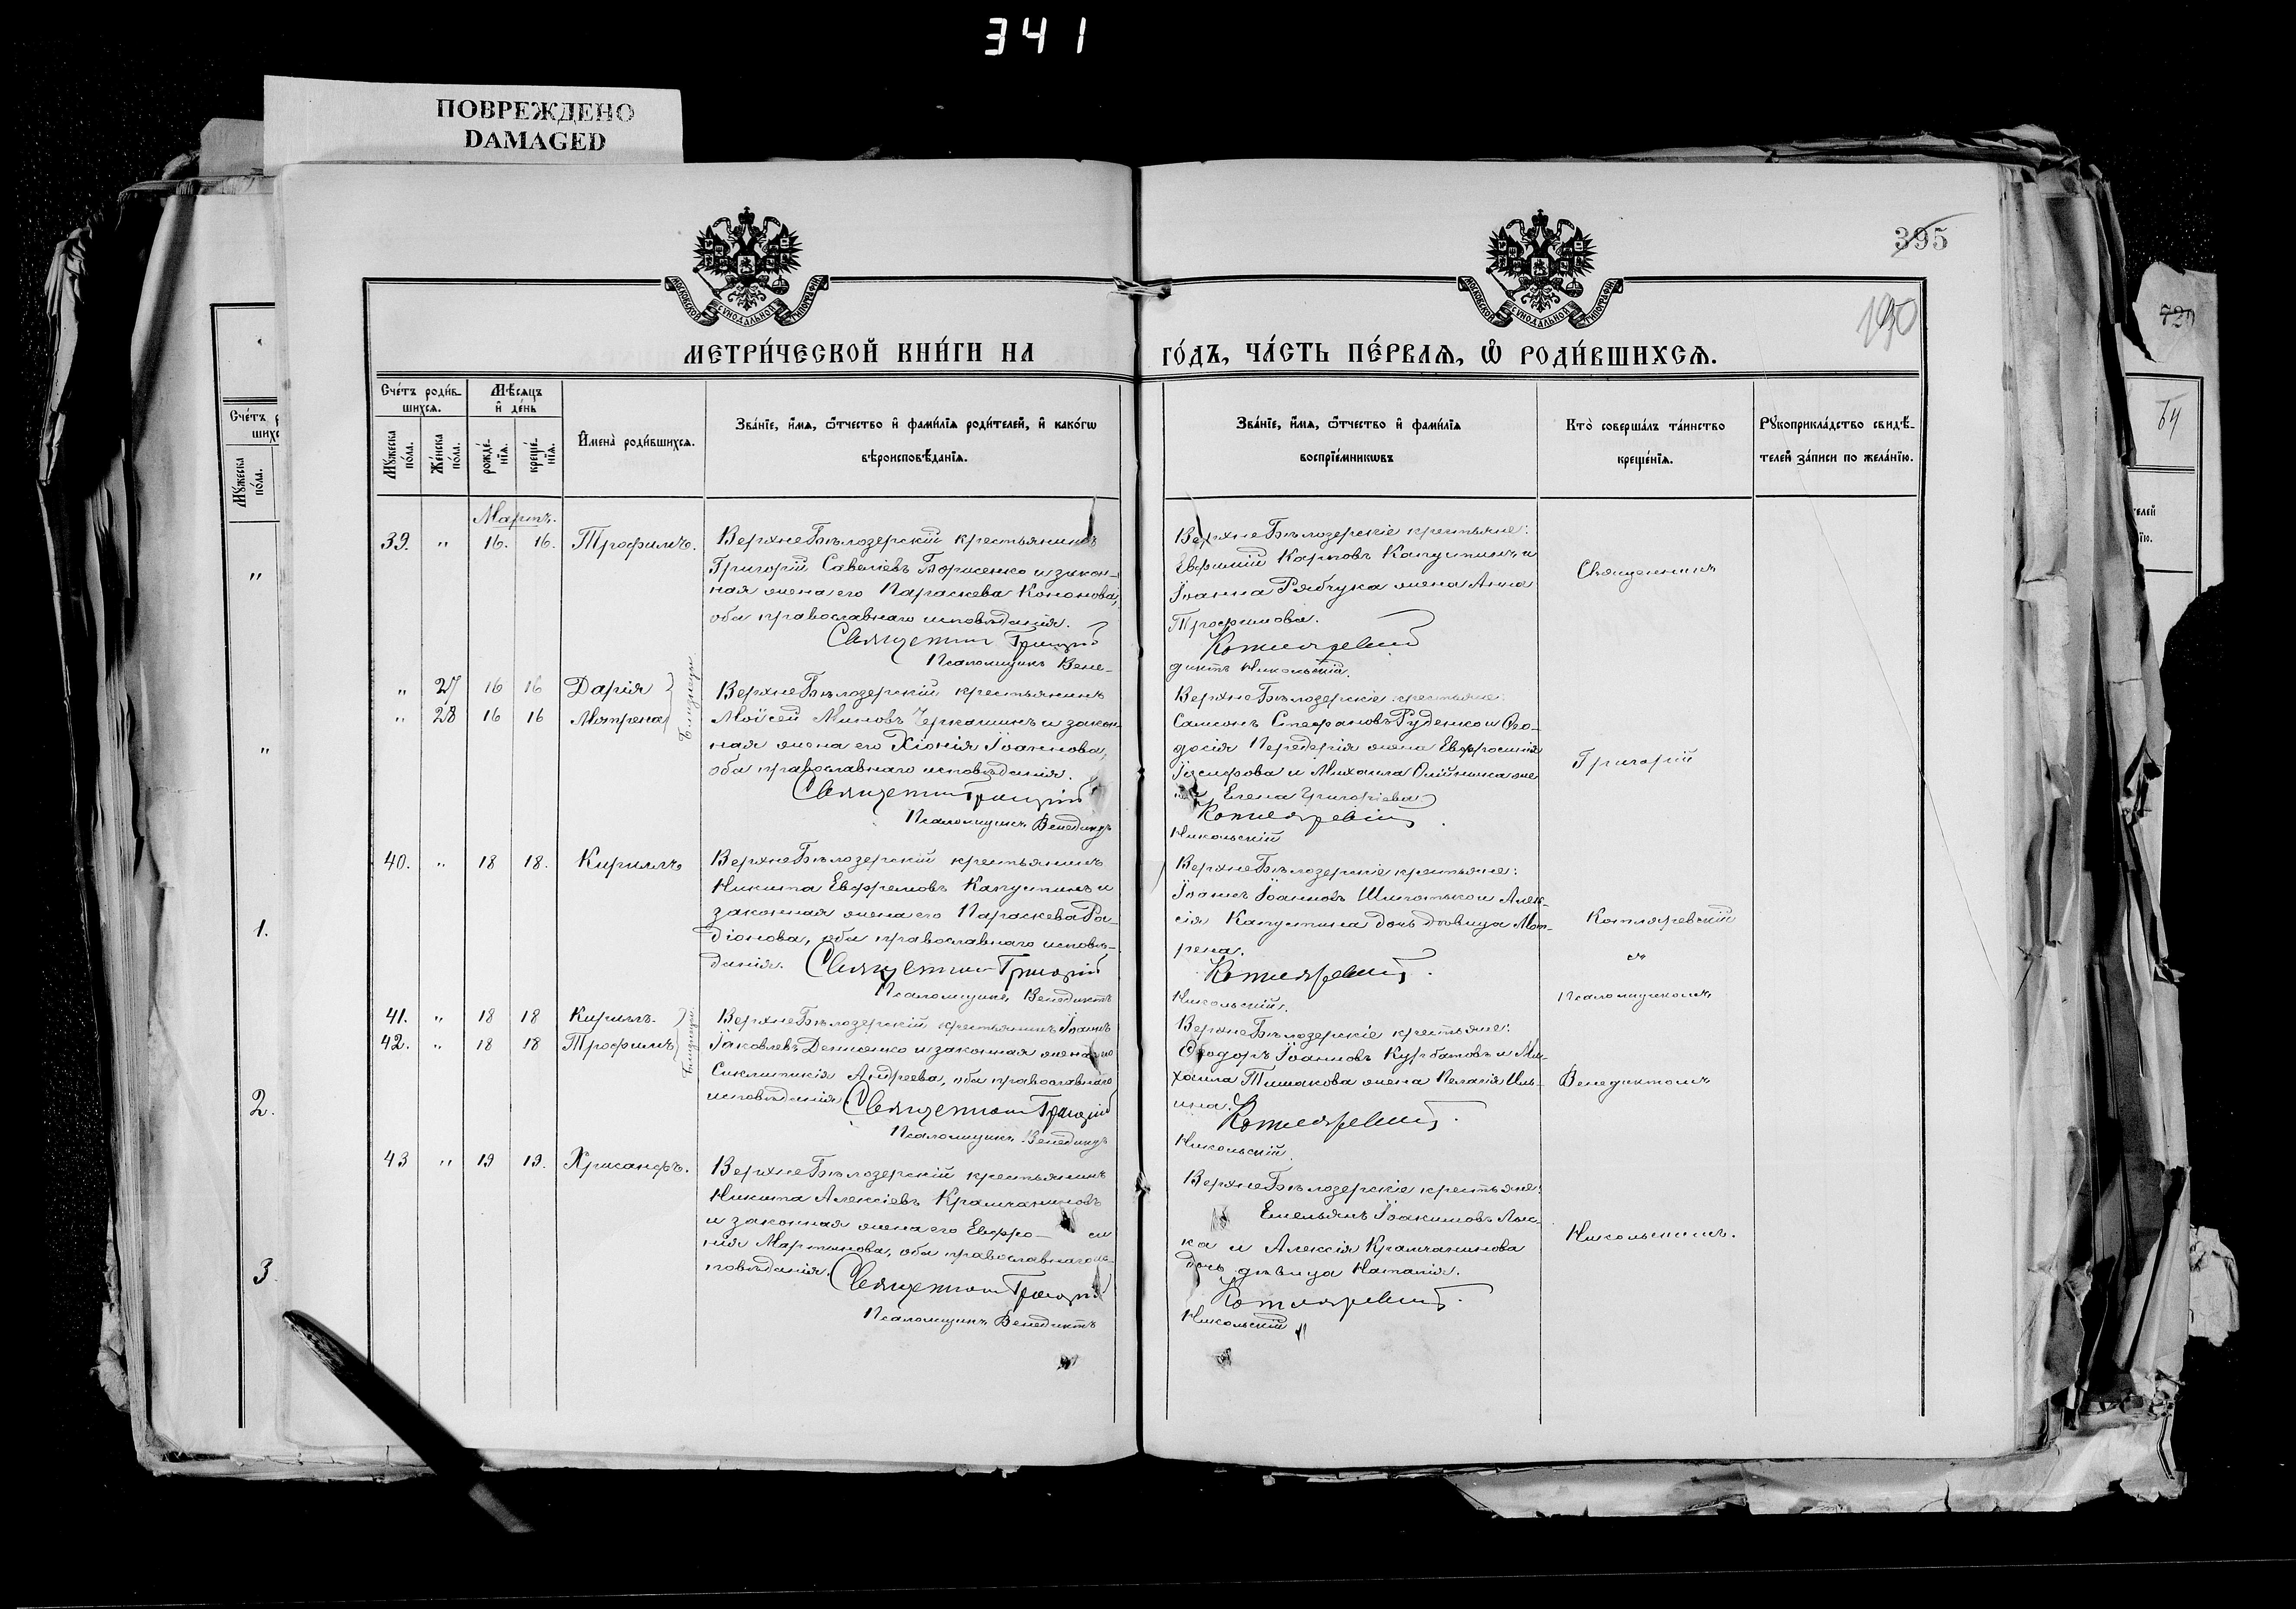 341
ПОВРЕЖДЕНО
DAMAGED
395
190
729
МОСКОВСКОЙ СѴНОДАЛЬНОЙ ТИПОГРАФІИ
МОСКОВСКОЙ СѴНОДАЛЬНОЙ ТИПОГРАФІИ
МЕТРИ́ЧЕСКОЙ КНИ́ГИ НА
ГО́ДЪ, ЧА́СТЬ ПЕ́РВАѦ, Ѡ҆ РОДИ́ВШИХСѦ.
Сче́тъ роди́в-
шихсѧ.
Мѣ́сѧцъ
и҆ де́нь
Мꙋ́жеска
по́ла.
Же́нска
по́ла.
рожде́-
нїѧ.
креще́-
нїѧ.
И҆мена̀ роди́вшихсѧ.
Зва́нїе, и҆́мѧ, ѻ҆́тчество и҆ фами́лїѧ роди́телей, и҆ како́гѡ
вѣроисповѣ́данїѧ.
Зва́нїе, и҆́мѧ, ѻ҆́тчество и҆ фами́лїѧ
воспрїе́мникѡвъ
Кто̀ соверша́лъ та́инство
креще́нїѧ.
Рꙋкоприкла́дство свидѣ́-
телей за́писи по жела́нїю.
Мартъ.
39. " 16. 16. Трофимъ.
ВерхнеБѣлозерскій крестьянинъ
Григорій Савеліевъ Борисенко и закон-
ная жена его Параскева Кононова,
оба православнаго исповѣданія.
Священникъ Григорій
Псаломщикъ Вене-
ВерхнеБѣлозерскіе крестьяне:
Евфимій Карповъ Капустинъ и
Іоанна Рябчука жена Анна
Трофимова.
Котляревскій
диктъ Никольскій.
Священникъ
" 27 16 16 Дарія
" 28 16 16 Матрена
Близнецы
ВерхнеБѣлозерскій крестьянинъ
Моѵсей Миновъ Черкашинъ и закон-
ная жена его Хіонія Іоаннова,
оба православнаго исповѣданія.
Священникъ Григорій
Псаломщикъ Венедиктъ
ВерхнеБѣлозерскіе крестьяне:
Самсонъ Стефановъ Руденко и Ѳео-
досія Передерія жена Евфросинія
Іосифова и Михаила Олійника же
на Елена Григоріева
Котляревскій
Никольскій
Григорій
40. " 18 18. Кириллъ
ВерхнеБѣлозерскій крестьянинъ
Никита Евфремовъ Капустинъ и
законная жена его Параскева Ро-
діонова, оба православнаго исповѣ-
данія. Священникъ Григорій
Псаломщикъ Венедиктъ
ВерхнеБѣлозерскіе крестьяне:
Іоаннъ Іоанновъ Шипотько и Алек-
сія Капустина дочь дѣвица Мат-
рена.
Котляревскій.
Никольскій.
Котляревскій
съ
Псаломщикомъ
41. " 18 18 Кириллъ.
42. " 18 18 Трофимъ
Близнецы
ВерхнеБѣлозерскій крестьянинъ Іоаннъ
Іаковлевъ Денисенко и законная жена его
Синклитикія Андреева, оба православнаго
исповѣданія. Священникъ Григорій
Псаломщикъ Венедиктъ
ВерхнеБѣлозерскіе крестьяне:
Ѳеодоръ Іоанновъ Курбатовъ и Ми-
хаила Тимакова жена Пелагія Иль-
ина.
Котляревскій.
Никольскій.
Венедиктомъ
43 " 19 19. Хрисанфъ.
ВерхнеБѣлозерскій крестьянинъ
Никита Алексіевъ Крамчаниновъ
и законная жена его Евфро- си
нія Мартинова, оба православнаго ис-
повѣданія. Священникъ Григорій
Псаломщикъ Венедиктъ
ВерхнеБѣлозерскіе крестьяне:
Емельянъ Іоакимовъ Лыс-
ка и Алексія Крамчанинова
дочь дѣвица Наталія.
Котляревскій.
Никольскій
Никольскимъ.
Сче́тъ р
шихс
Мꙋ́жеска
по́ла.
"
"
1.
2.
3.
телей
їю.